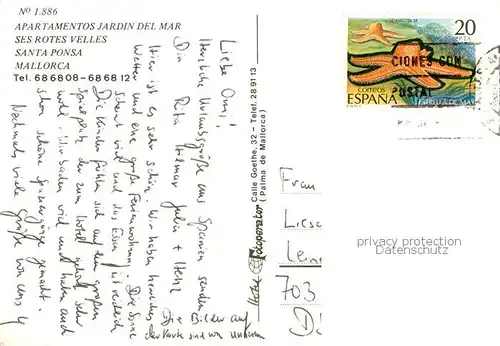 Nº 1.886
APARTAMENTOS JARDIN DEL MAR
SES ROTES VELLES
SANTA PONSA
MALLORCA
Tel. 686808-686812
Liebe Omi!
Herzliche Urlaubsgrüße aus Spanien senden
Dir Rita Hilmar Julia +
Hier ist es sehr schön. Wir haben herrliches
Wetter und eine große Ferienwohnung. Die Sonne
scheint viel und das Essen ist reichlich
Die Kinder fühlen sich auf dem großen
Spielplatz der zum Hotel gehört sehr
wohl. Wir baden viel und haben auch
schon schöne Spaziergänge gemacht.
Nochmals viele Grüße von uns 4
Die Bilder auf
der Karte sind von unserem
Fotoperator Calle Goethe, 32 - Telef. 289113
(Palma de Mallorca)
20
PTA
CIONES CON
POSTAL
CORREOS
ESPAÑA
ESTRELLA DE MAR
Frau
Liese
703
privacy protection
Datenschutz